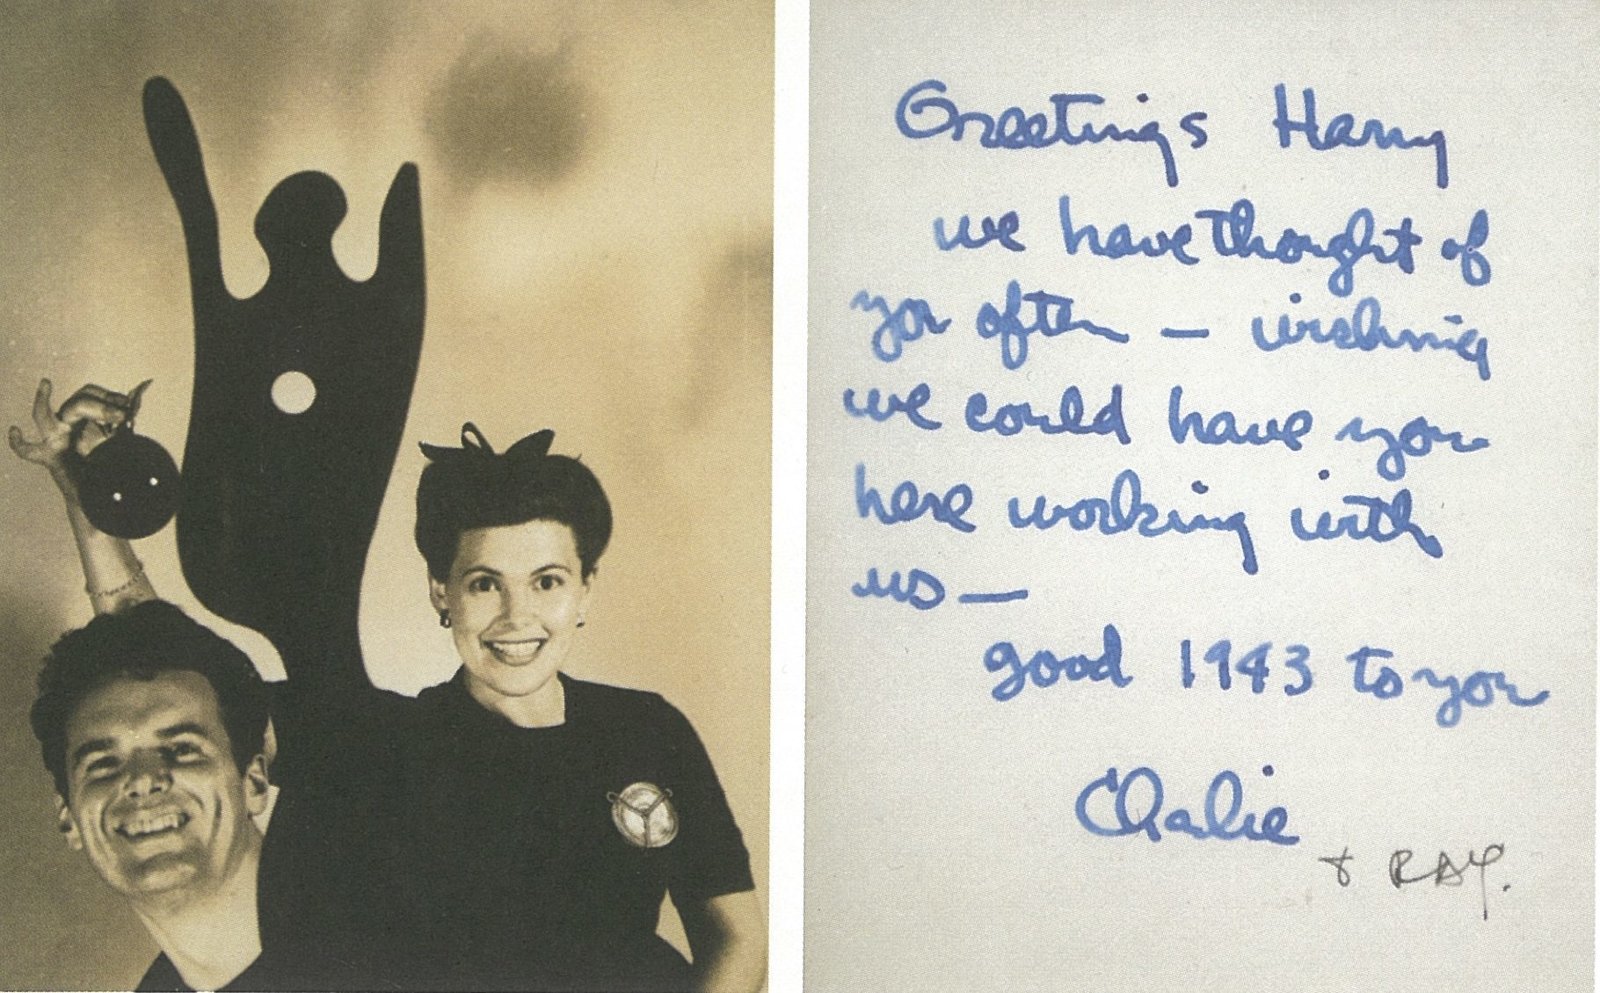 Greetings Harry
we have thought of
you often — wishing
we could have you
here working with
us —
good 1943 to you
Charlie
+ RAY.